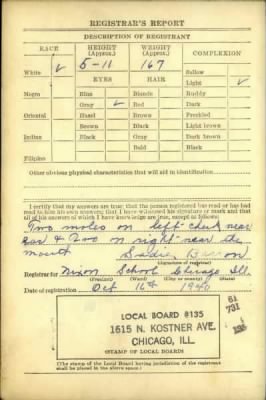 REGISTRAR'S REPORT
DESCRIPTION OF REGISTRANT
RACE HEIGHT (Approx.) WEIGHT (Approx.) COMPLEXION
White ✓ 5-11 167 Sallow
EYES HAIR Light ✓
Negro Blue Blonde Ruddy
Gray ✓ Red Dark
Oriental Hazel Brown Freckled
Brown Black Light brown
Indian Black Gray Dark brown
Bald Black
Filipino
Other obvious physical characteristics that will aid in identification
I certify that my answers are true; that the person registered has read or has had
read to him his own answers; that I have witnessed his signature or mark and that
all of his answers of which I have knowledge are true, except as follows:
Two moles on left cheek near
ear & two on right near the
mouth
(Signature of registrar)
Registrar for Nixon School Chicago Ill.
Date of registration Oct 16th 1940
LOCAL BOARD #135
1615 N. KOSTNER AVE.
CHICAGO, ILL.
(STAMP OF LOCAL BOARD)
(The stamp of the Local Board having jurisdiction of the registrant
shall be placed in the above space.)